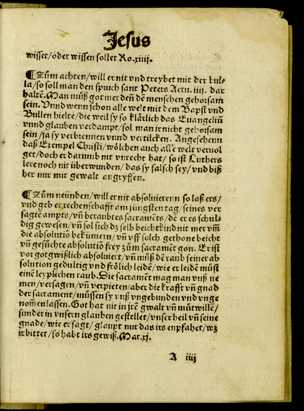 Jesus
wisset/öder wissen sollet Ro.xiiij.
¶Zům achten/will er nit vnd treybet mit der bul-
la/so soll man den spruch sant Peters Actu. iiij. dar
haltē. Man můß got mer deñ dē menschen gehorsam
sein. Vnnd wenn schon alle welt mit dem Bapst vnd
Bullen hielte/die weil sy so klärlich das Euangeliū
vnnd glauben verdampt/sol man ir nicht gehorsam
sein/ja sy verbrennen vnnd vertilcken. Angesehenn
daß Exempel Christi/wölchen auch alle welt veruol
get/doch er darumb nit vnrecht hat/so ist Luthers
lere noch nit überwunden/das sy falsch sey/vnd biß
her nur mit gewalt angryffen.
¶Zům neünden/will er nit absoluieren so laß ers/
vnd geb er rechenschafft am jüngsten tag seines ver
sagtē ampts/vñ beraubtes sacramēts/dē er es schul
dig gewesen/vñ sol sich dz selb beichtkind nit mer vm̄
die absolutiō bekümern/vñ vff solch gethone beicht
vñ gesůchte absolutiō frey zům sacramēt gon. Er ist
vor got gwißlich absoluiert/vñ můß dē raub seiner ab
solution gedultig vnd frölich leidē/wie er leidē můst
eine leyplichen raub. Die sacramēt mag man vnß ne
men/versagen/vñ verpieten/aber die krafft vñ gnad
der sacrament/müssen sy vnß vngebunden vnd vnge
nommen lassen. Got hat nit in irē gwalt vñ můtwillē/
sunder in vnsern glauben gestellet/vnser heil vñ seine
gnade/wie er sagt/glaupt nur das irs enpfahet/wz
ir bittet/so habt irs gewiß. Mat.xj.
A iiij